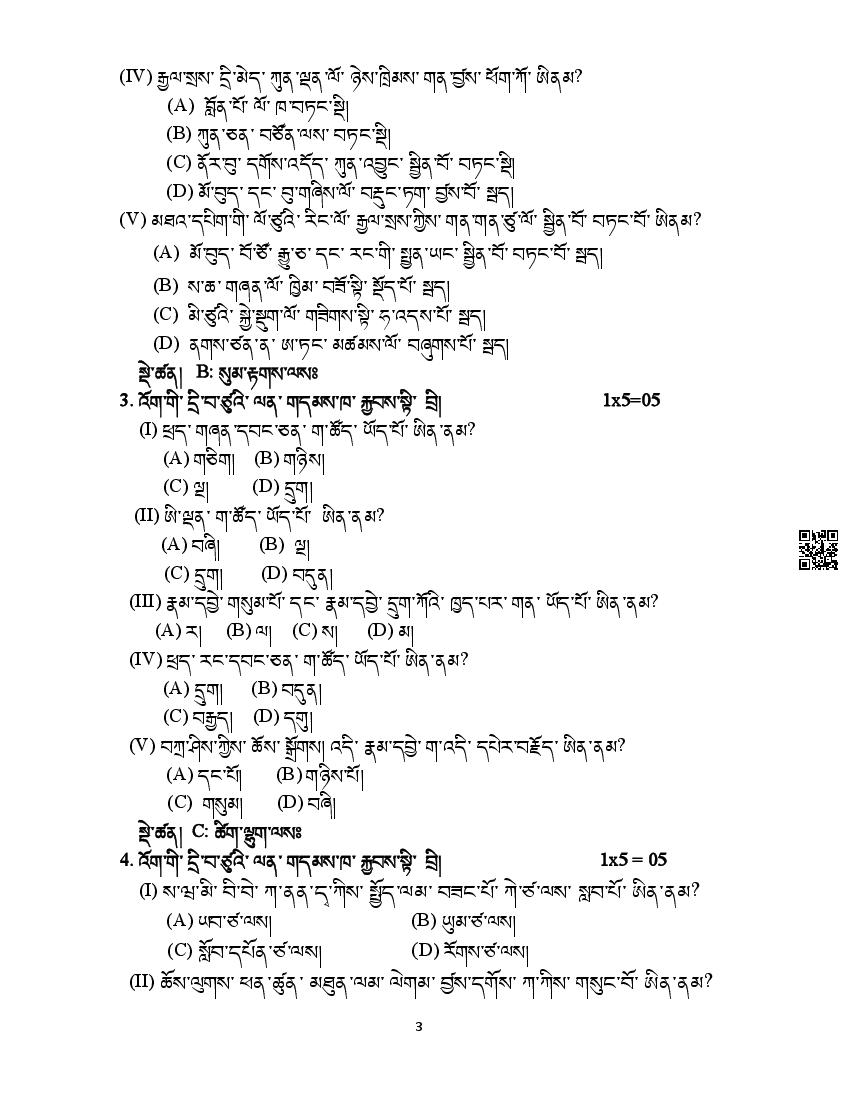 (IV) རྒྱལ་སྲས་ དྲི་མེད་ ཀུན་ལྡན་ལོ་ ཉེས་ཁྲིམས་ གན་བྱོས་ ཕོག་ཀོ་ ཨིནམ?
(A) བློན་པོ་ ལོ་ ཁ་བཏང་སྡི།
(B) ཀུན་ཅན་ བཙོན་ལས་ བཏང་སྡི།
(C) ནོར་བུ་ དགོས་འདོད་ ཀུན་འབྱུང་ སྦྱིན་བོ་ བཏང་སྡི།
(D) མོ་བུད་ དང་ བུ་གཞིས་ལོ་ བརྡུང་ཏག་ བྱོས་བོ་ སྦད།
(V) མཐའ་དཔག་གི་ ལོ་ཙུའི་ རིང་ལོ་ རྒྱལ་སྲས་ཀྱིས་ གན་གན་ཙུ་ལོ་ སྦྱིན་བོ་ བཏང་བོ་ ཨིནམ?
(A) མོ་བུད་ བོ་ཙོ་ རྒྱུ་ཅ་ དང་ རང་གི་ སྤྱན་ཡང་ སྦྱིན་བོ་ བཏང་བོ་ སྦད།
(B) ས་ཆ་ གཞན་ལོ་ ཁྱིམ་ བཟོ་སྟི་ སྡོད་པོ་ སྦད།
(C) མི་ཙུའི་ སྐྱེ་སྡུག་ལོ་ གཟིགས་སྟི་ ཧ་འདས་པོ་ སྦད།
(D) ནགས་ཙན་ན་ ཨ་ཏང་ མཚམས་ལོ་ བཞུགས་པོ་ སྦད།
སྡེ་ཚན། B: སུམ་རྟགས་ལས༔
3. འོག་གི་ དྲི་བ་ཙུའི་ ལན་ གདམས་ཁ་ རྐྱབས་སྟི་ བྲི། 1x5=05
(I) ཕྲད་ གཞན་དབང་ཅན་ ག་ཚོད་ ཡོད་པོ་ ཨིན་ནམ?
(A) གཅིག། (B) གཉིས།
(C) ལྔ། (D) དྲུག།
(II) ཨི་ལྡན་ ག་ཚོད་ ཡོད་པོ་ ཨིན་ནམ?
(A) བཞི། (B) ལྔ།
(C) དྲུག། (D) བདུན།
(III) རྣམ་དབྱེ་ གསུམ་པོ་ དང་ རྣམ་དབྱེ་ དྲུག་ཀོའི་ ཁྱད་པར་ གན་ ཡོད་པོ་ ཨིན་ནམ?
(A) ར། (B) ལ། (C) ས། (D) མ།
(IV) ཕྲད་ རང་དབང་ཅན་ ག་ཚོད་ ཡོད་པོ་ ཨིན་ནམ?
(A) དྲུག། (B) བདུན།
(C) བརྒྱད། (D) དགུ།
(V) བཀྲ་ཤིས་ཀྱིས་ ཆོས་ སྒྲོགས། འདི་ རྣམ་དབྱེ་ ག་འདི་ དཔེར་བརྗོད་ ཨིན་ནམ?
(A) དང་པོ། (B) གཉིས་པོ།
(C) གསུམ། (D) བཞི།
སྡེ་ཚན། C: ཚིག་ལྷུག་ལས༔
4. འོག་གི་ དྲི་བ་ཙུའི་ ལན་ གདམས་ཁ་ རྐྱབས་སྟི་ བྲི། 1x5 = 05
(I) ས་ཝ་མི་ བི་བེ་ ཀ་ནན་ད་ཀིས་ སྤྱོད་ལམ་ བཟང་པོ་ ཀེ་ཙ་ལས་ སླབ་པོ་ ཨིན་ནམ?
(A) ཡབ་ཙ་ལས། (B) ཡུམ་ཙ་ལས།
(C) སློབ་དཔོན་ཙ་ལས། (D) རོགས་ཙ་ལས།
(II) ཆོས་ལུགས་ ཕན་ཚུན་ མཐུན་ལམ་ ལེགམ་ བྱོས་དགོས་ ཀ་ཀིས་ གསུང་བོ་ ཨིན་ནམ?
3